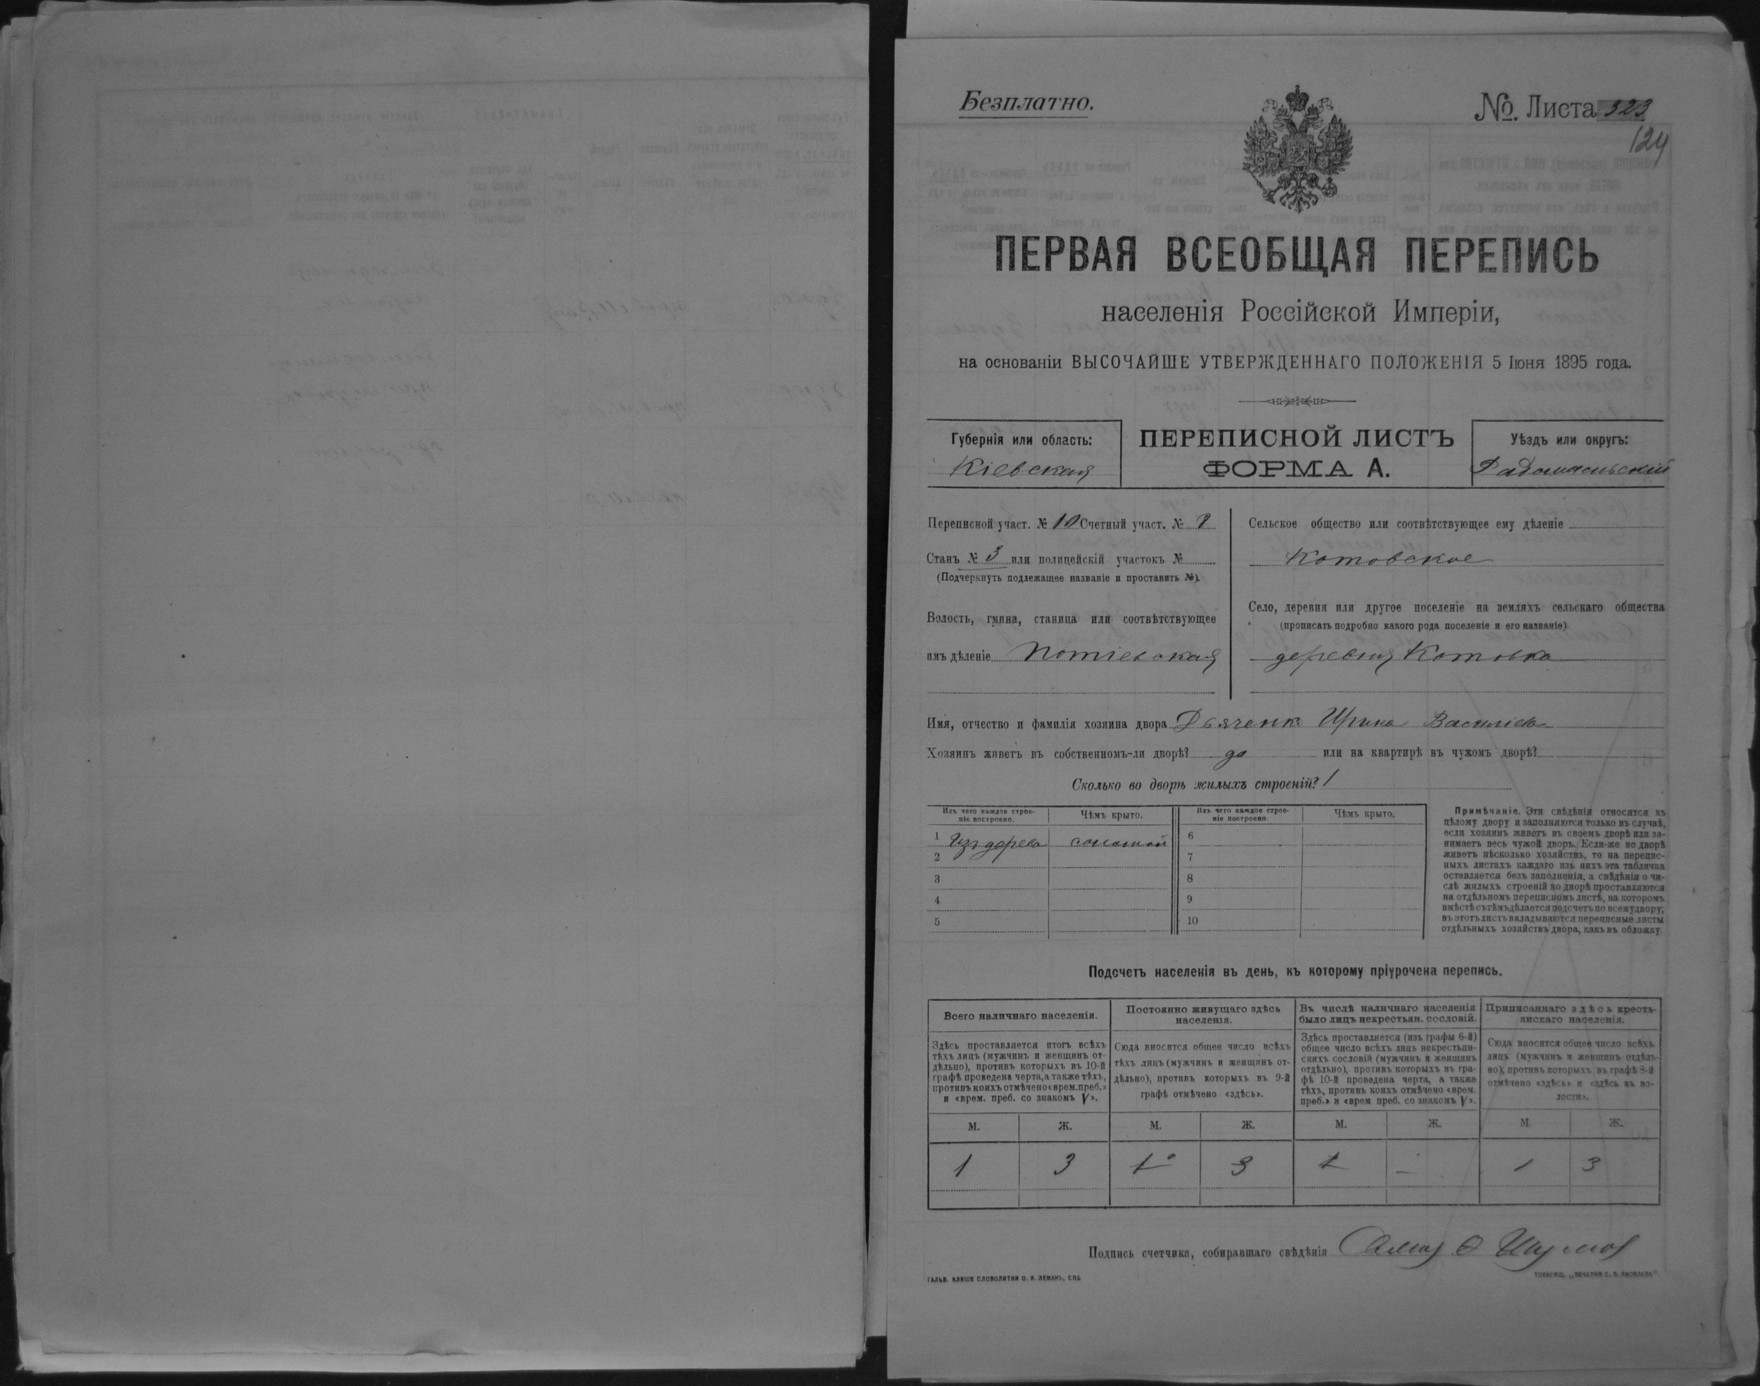 Безплатно.
№. Листа 323
124
ПЕРВАЯ ВСЕОБЩАЯ ПЕРЕПИСЬ
населенія Россійской Имперіи,
на основаніи ВЫСОЧАЙШЕ УТВЕРЖДЕННАГО ПОЛОЖЕНІЯ 5 Іюня 1895 года.
Губернія или область:
Кіевская
ПЕРЕПИСНОЙ ЛИСТЪ
ФОРМА А.
Уѣздъ или округъ:
Радомысльскій
Переписной участ. № 10 Счетный участ. №
Станъ № 3 или полицейскій участокъ №
(Подчеркнуть подлежащее названіе и проставить №).
Волость, гмина, станица или соотвѣтствующее
имъ дѣленіе Потіевская
Сельское общество или соотвѣтствующее ему дѣленіе
Котовское
Село, деревня или другое поселеніе на земляхъ сельскаго общества
(прописать подробно какого рода поселеніе и его названіе)
деревня Котовка
Имя, отчество и фамилія хозяина двора Дьяченко Ирина Василіева
Хозяинъ живетъ въ собственномъ-ли дворѣ? да или на квартирѣ въ чужомъ дворѣ?
Сколько во дворѣ жилыхъ строеній? 1
Изъ чего каждое строе-
ніе построено.
Чѣмъ крыто.
Изъ чего каждое строе-
ніе построено.
Чѣмъ крыто.
1 Изъ дерева соломой
2
3
4
5
6
7
8
9
10
Примѣчаніе. Эти свѣдѣнія относятся къ
цѣлому двору и заполняются только въ случаѣ,
если хозяинъ живетъ въ своемъ дворѣ или за-
нимаетъ весь чужой дворъ. Если-же во дворѣ
живетъ нѣсколько хозяйствъ, то на перепис-
ныхъ листахъ каждаго изъ нихъ эта табличка
оставляется безъ заполненія, а свѣдѣнія о чи-
слѣ жилыхъ строеній во дворѣ проставляются
на отдѣльномъ переписномъ листѣ, на которомъ
вмѣстѣ съ тѣмъ дѣлается подсчетъ по всему двору;
въ этотъ листъ вкладываются переписные листы
отдѣльныхъ хозяйствъ двора, какъ въ обложку.
Подсчетъ населенія въ день, къ которому пріурочена перепись.
Всего наличнаго населенія.
Здѣсь проставляется итогъ всѣхъ
тѣхъ лицъ (мужчинъ и женщинъ от-
дѣльно), противъ которыхъ въ 10-й
графѣ проведена черта, а также тѣхъ,
противъ коихъ отмѣчено «врем. преб.»
и «врем. преб. со знакомъ V».
Постоянно живущаго здѣсь
населенія.
Сюда вносится общее число всѣхъ
тѣхъ лицъ (мужчинъ и женщинъ от-
дѣльно), противъ которыхъ въ 9-й
графѣ отмѣчено «здѣсь».
Въ числѣ наличнаго населенія
было лицъ некрестьян. сословій.
Здѣсь проставляется (изъ графы 6-й)
общее число всѣхъ лицъ некрестьян-
скихъ сословій (мужчинъ и женщинъ
отдѣльно), противъ которыхъ въ гра-
фѣ 10-й проведена черта, а также
тѣхъ, противъ коихъ отмѣчено «врем.
преб.» и «врем. преб. со знакомъ V».
Приписаннаго здѣсь кресть-
янскаго населенія.
Сюда вносится общее число всѣхъ
лицъ (мужчинъ и женщинъ отдѣль-
но), противъ которыхъ въ графѣ 8-й
отмѣчено «здѣсь» и «здѣсь въ во-
лости».
М. Ж. М. Ж. М. Ж. М. Ж.
1 3 1 3 1 — 1 3
Подпись счетчика, собиравшаго свѣдѣнія
ГАЛЬВ. КЛИШЕ СЛОВОЛИТНИ О. И. ЛЕМАНЪ, СПБ.